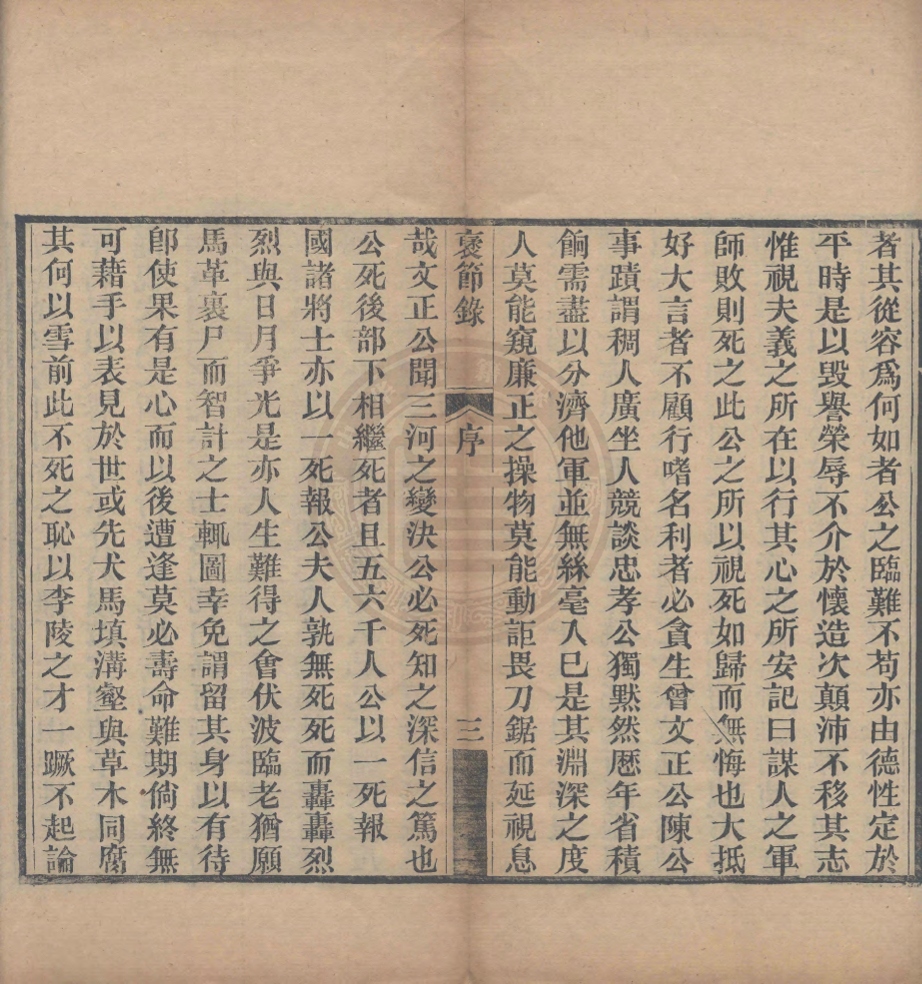 者其從容爲何如者公之臨難不苟亦由德性定於
平時是以毀譽榮辱不介於懷造次顛沛不移其志
惟視夫義之所在以行其心之所安記曰謀人之軍
師敗則死之此公之所以視死如歸而無悔也大抵
好大言者不顧行嗜名利者必貪生曾文正公陳公
事蹟謂稠人廣坐人競談忠孝公獨默然歷年省積
餉需盡以分濟他軍並無絲毫入已是其淵深之度
人莫能窺廉正之操物莫能動詎畏刀鋸而延視息
褒節錄
序
三
哉文正公聞三河之變決公必死知之深信之篤也
公死後部下相繼死者且五六千人公以一死報
國諸將士亦以一死報公夫人孰無死死而轟轟烈
烈與日月爭光是亦人生難得之會伏波臨老猶願
馬革裹尸而智計之士輒圖幸免謂留其身以有待
卽使果有是心而以後遭逢莫必壽命難期倘終無
可藉手以表見於世或先犬馬填溝壑與草木同腐
其何以雪前此不死之恥以李陵之才一蹶不起論